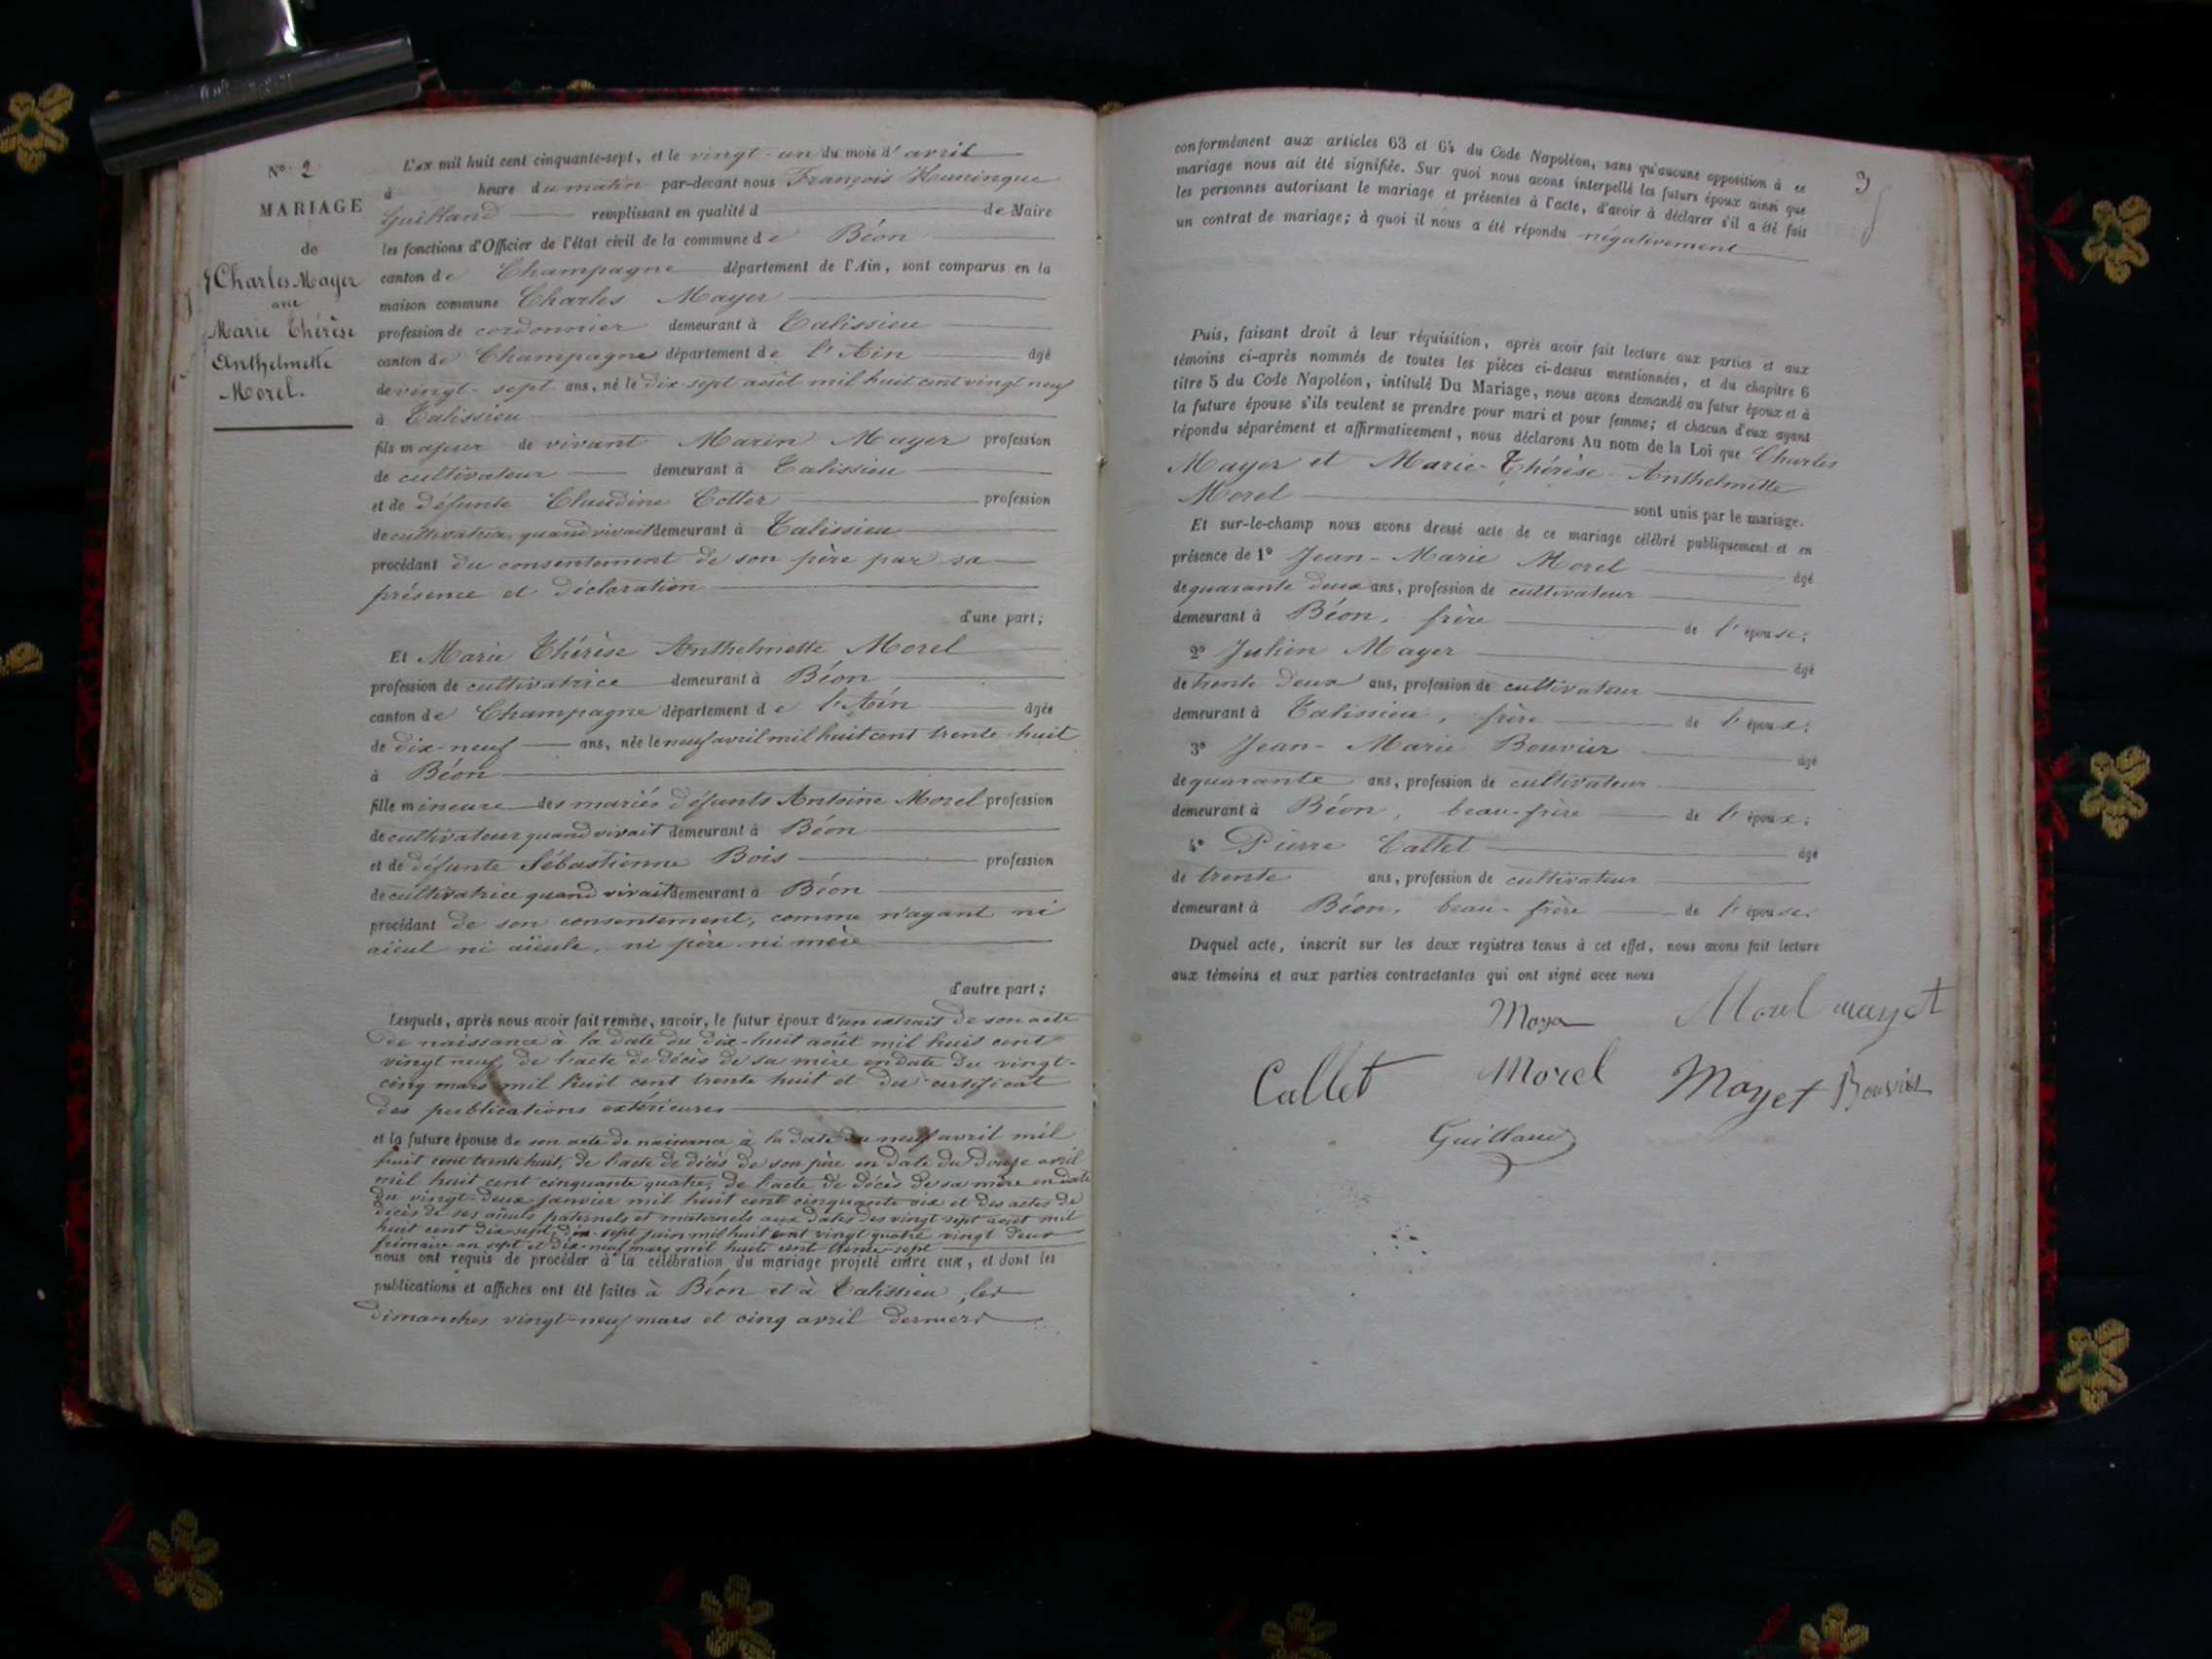 N° 2
MARIAGE
de
Charles Mayer
avec
Marie Thérèse
Anthelmette
Morel.
L'an mil huit cent cinquante-sept, et le vingt-un du mois d'avril
à heure du matin par-devant nous François
Guilland remplissant en qualité d de Maire
les fonctions d'Officier de l'état civil de la commune de Béon
canton de Champagne département de l'Ain, sont comparus en la
maison commune Charles Mayer
profession de cordonnier demeurant à Talissieu
canton de Champagne département de l'Ain âgé
de vingt-sept ans, né le dix sept août mil huit cent vingt neuf
à Talissieu
fils majeur de vivant Marin Mayer profession
de cultivateur demeurant à Talissieu
et de défunte Claudine Cotter profession
de cultivatrice quand vivait demeurant à Talissieu
procédant du consentement de son père par sa
présence et déclaration
d'une part;
Et Marie Thérèse Anthelmette Morel
profession de cultivatrice demeurant à Béon
canton de Champagne département de l'Ain âgée
de dix-neuf ans, née le neuf avril mil huit cent trente-huit
à Béon
fille mineure des mariés défunts Antoine Morel profession
de cultivateur quand vivait demeurant à Béon
et de défunte Sébastienne Bois profession
de cultivatrice quand vivait demeurant à Béon
procédant de son consentement, comme n'ayant ni
aïeul ni aïeule, ni père ni mère
d'autre part;
Lesquels, après nous avoir fait remise, savoir, le futur époux d'un extrait de son acte
de naissance à la date du dix-huit août mil huit cent
vingt neuf, de l'acte de décès de sa mère en date du vingt-
cinq mars mil huit cent trente huit et du certificat
des publications extérieures
et la future épouse de son acte de naissance à la date du neuf avril mil
huit cent trente huit, de l'acte de décès de son père en date du douze avril
mil huit cent cinquante quatre, de l'acte de décès de sa mère en date
du vingt-deux janvier mil huit cent cinquante six et des actes de
décès de ses aïeuls paternels et maternels aux dates des vingt sept août mil
huit cent dix-sept, dix-sept juin mil huit cent vingt quatre vingt deux
frimaire an sept et dix-neuf mars mil huit cent trente-sept
nous ont requis de procéder à la célébration du mariage projeté entre eux, et dont les
publications et affiches ont été faites à Béon et à Talissieu, les
dimanches vingt-neuf mars et cinq avril derniers
conformément aux articles 63 et 64 du Code Napoléon, sans qu'aucune opposition à ce
mariage nous ait été signifiée. Sur quoi nous avons interpellé les futurs époux ainsi que
les personnes autorisant le mariage et présentes à l'acte, d'avoir à déclarer s'il a été fait
un contrat de mariage; à quoi il nous a été répondu négativement
Puis, faisant droit à leur réquisition, après avoir fait lecture aux parties et aux
témoins ci-après nommés de toutes les pièces ci-dessus mentionnées, et du chapitre 6
titre 5 du Code Napoléon, intitulé Du Mariage, nous avons demandé au futur époux et à
la future épouse s'ils veulent se prendre pour mari et pour femme; et chacun d'eux ayant
répondu séparément et affirmativement, nous déclarons Au nom de la Loi que Charles
Mayer et Marie-Thérèse-Anthelmette
Morel sont unis par le mariage.
Et sur-le-champ nous avons dressé acte de ce mariage célébré publiquement et en
présence de 1° Jean-Marie Morel âgé
de quarante deux ans, profession de cultivateur
demeurant à Béon, frère de l'épouse;
2° Mayer âgé
de trente deux ans, profession de cultivateur
demeurant à Talissieu, frère de l'époux;
3° Jean-Marie Bouvier âgé
de quarante ans, profession de cultivateur
demeurant à Béon, beau-frère de l'époux;
4° Pierre Callet âgé
de trente ans, profession de cultivateur
demeurant à Béon, beau-frère de l'épouse.
Duquel acte, inscrit sur les deux registres tenus à cet effet, nous avons fait lecture
aux témoins et aux parties contractantes qui ont signé avec nous
Morel mayet
Callet Morel Mayet Bouvier
Guilland